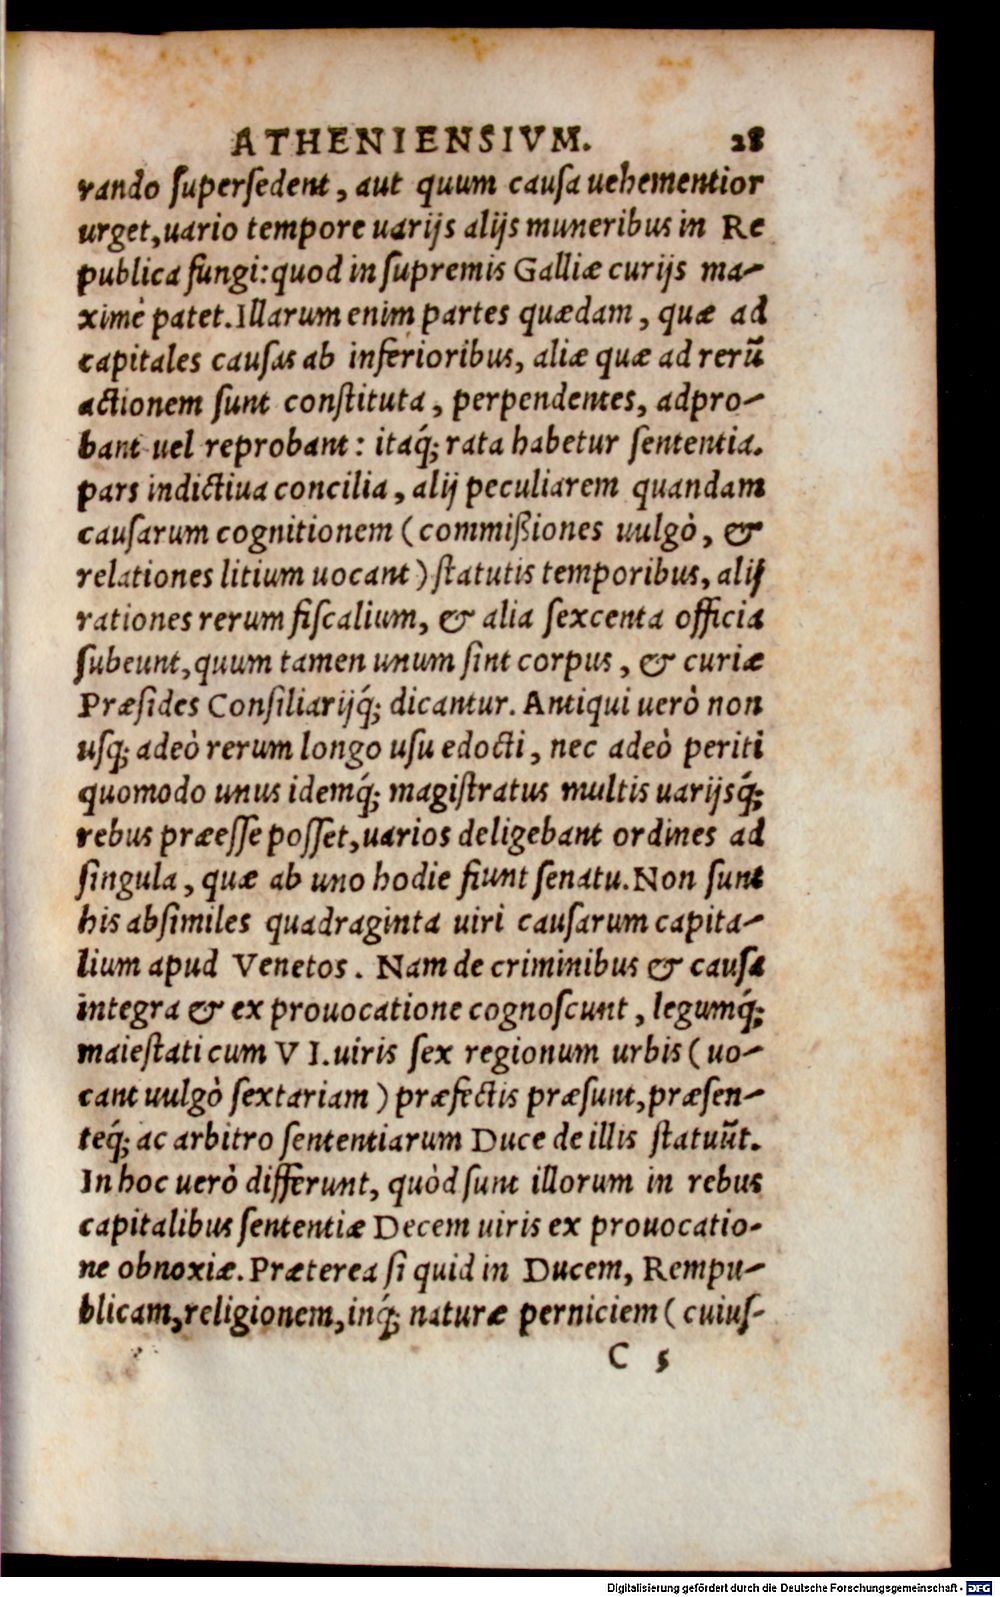 ATHENIENSIVM. 28
rando ſuperſedent, aut quum cauſa uehementior
urget, uario tempore uarijs alijs muneribus in Re
publica fungi: quod in ſupremis Galliæ curijs ma-
ximè patet. Illarum enim partes quædam, quæ ad
capitales cauſas ab inferioribus, aliæ quæ ad rerũ
actionem ſunt conſtituta, perpendentes, adpro-
bant uel reprobant: itaq́; rata habetur ſententia.
pars indictiua concilia, alij peculiarem quandam
cauſarum cognitionem (commißiones uulgò, &
relationes litium uocant) ſtatutis temporibus, alij
rationes rerum fiſcalium, & alia ſexcenta officia
ſubeunt, quum tamen unum ſint corpus, & curiæ
Præſides Conſiliarijq́; dicantur. Antiqui uerò non
uſq; adeò rerum longo uſu edocti, nec adeò periti
quomodo unus idemq́; magiſtratus multis uarijsq́;
rebus præeſſe poſſet, uarios deligebant ordines ad
ſingula, quæ ab uno hodie fiunt ſenatu. Non ſunt
his abſimiles quadraginta uiri cauſarum capita-
lium apud Venetos. Nam de criminibus & cauſa
integra & ex prouocatione cognoſcunt, legumq́;
maieſtati cum VI. uiris ſex regionum urbis (uo-
cant uulgò ſextariam) præfectis præſunt, præſen-
teq́; ac arbitro ſententiarum Duce de illis ſtatuũt.
In hoc uerò differunt, quòd ſunt illorum in rebus
capitalibus ſententiæ Decem uiris ex prouocatio-
ne obnoxiæ. Præterea ſi quid in Ducem, Rempu-
blicam, religionem, inq́; naturæ perniciem (cuiuſ-
C 5
Digitalisierung gefördert durch die Deutsche Forschungsgemeinschaft - DFG